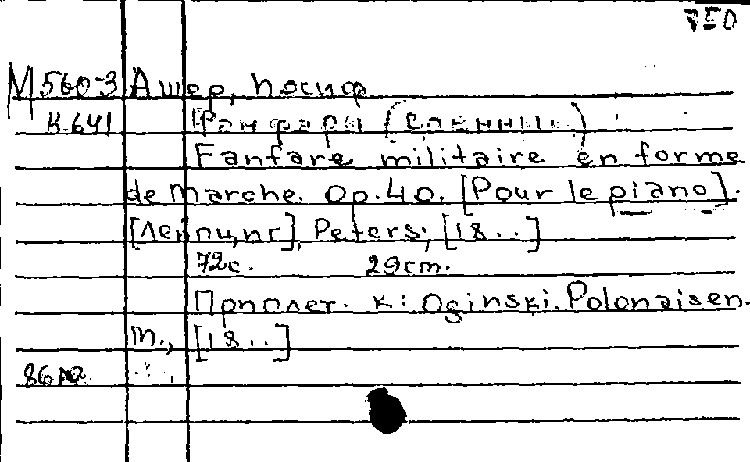 750
М 560-3 Ашер, Иосиф
К-641 Фанфары (военные)
Fanfare militaire en forme
de marche. Op. 40. [Pour le piano].
[Лейпциг], Peters, [18..]
72с. 29cm.
Приплет. к: Oginski. Polonaisen.
m., [18..]